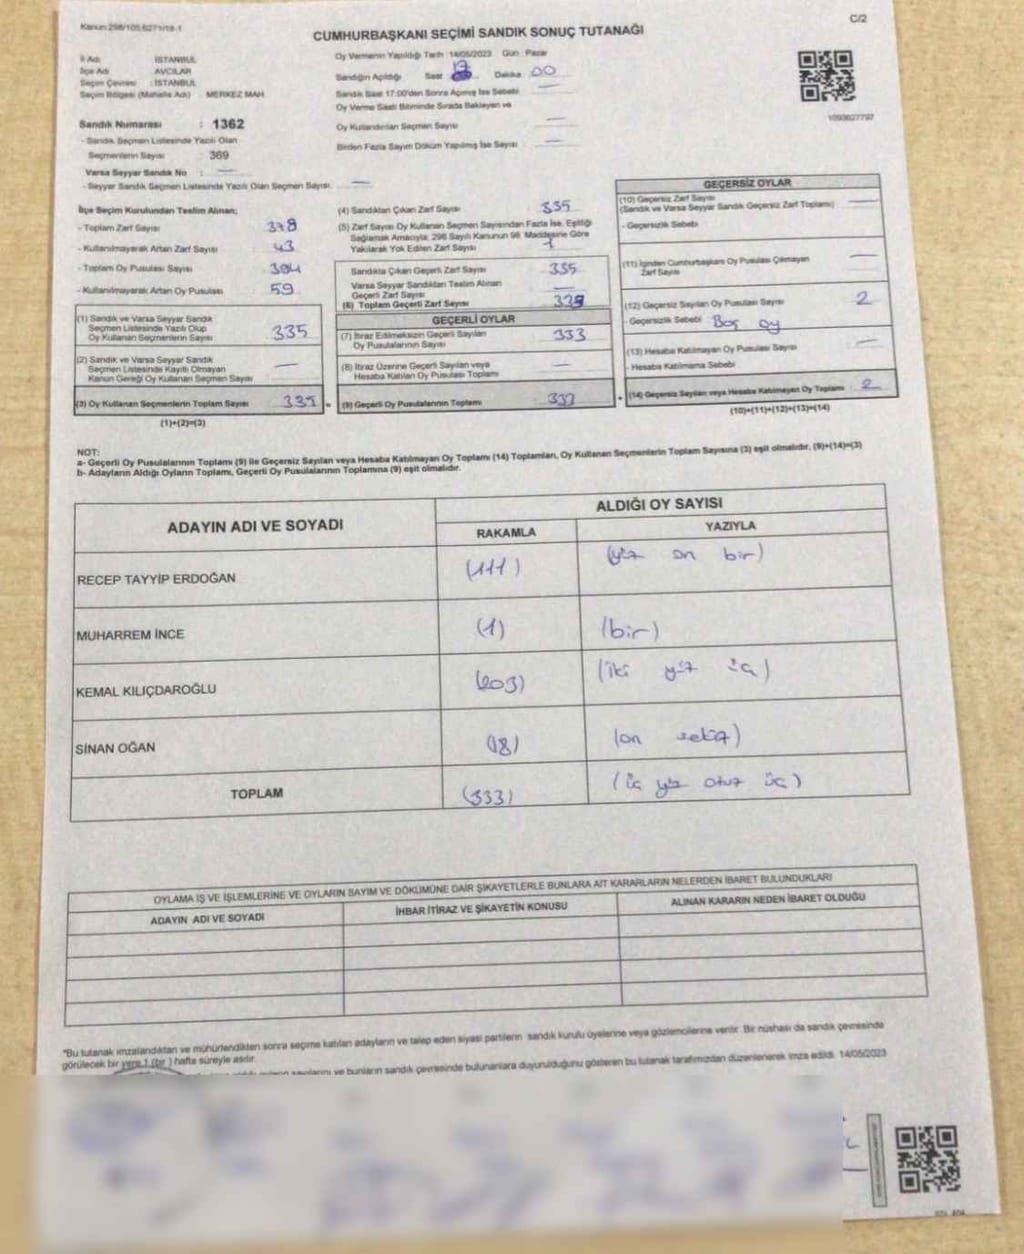 Kanun 298/105.6271/18-1
C/2
CUMHURBAŞKANI SEÇİMİ SANDIK SONUÇ TUTANAĞI
İl Adı İSTANBUL
İlçe Adı AVCILAR
Seçim Çevresi : İSTANBUL
Seçim Bölgesi (Mahalle Adı) MERKEZ MAH
Sandık Numarası : 1362
- Sandık Seçmen Listesinde Yazılı Olan
Seçmenlerin Sayısı : 369
Varsa Seyyar Sandık No :
- Seyyar Sandık Seçmen Listesinde Yazılı Olan Seçmen Sayısı
Oy Vermenin Yapıldığı Tarih 14/05/2023 Gün : Pazar
Sandığın Açıldığı Saat Dakika 00
Sandık Saat 17.00'den Sonra Açılmış İse Sebebi
Oy Verme Saati Bitiminde Sırada Bekleyen ve
Oy Kullandırılan Seçmen Sayısı
Birden Fazla Sayım Döküm Yapılmış İse Sayısı
1093627797
İlçe Seçim Kurulundan Teslim Alınan;
- Toplam Zarf Sayısı 378
- Kullanılmayarak Artan Zarf Sayısı 43
- Toplam Oy Pusulası Sayısı 394
- Kullanılmayarak Artan Oy Pusulası 59
(1) Sandık ve Varsa Seyyar Sandık
Seçmen Listesinde Yazılı Olup
Oy Kullanan Seçmenlerin Sayısı 335
(2) Sandık ve Varsa Seyyar Sandık
Seçmen Listesinde Kayıtlı Olmayan
Kanun Gereği Oy Kullanan Seçmen Sayısı
(3) Oy Kullanan Seçmenlerin Toplam Sayısı 335 =
(1)+(2)=(3)
(4) Sandıktan Çıkan Zarf Sayısı 335
(5) Zarf Sayısı Oy Kullanan Seçmen Sayısından Fazla İse, Eşitliği
Sağlamak Amacıyla; 298 Sayılı Kanunun 98. Maddesine Göre
Yakılarak Yok Edilen Zarf Sayısı
Sandıkta Çıkan Geçerli Zarf Sayısı 335
Varsa Seyyar Sandıktan Teslim Alınan
Geçerli Zarf Sayısı
(6) Toplam Geçerli Zarf Sayısı
GEÇERLİ OYLAR
(7) İtiraz Edilmeksizin Geçerli Sayılan
Oy Pusulalarının Sayısı 333
(8) İtiraz Üzerine Geçerli Sayılan veya
Hesaba Katılan Oy Pusulası Toplamı
(9) Geçerli Oy Pusulalarının Toplamı 333 +
GEÇERSİZ OYLAR
(10) Geçersiz Zarf Sayısı
(Sandık ve Varsa Seyyar Sandık Geçersiz Zarf Toplamı)
- Geçersizlik Sebebi
(11) İçinden Cumhurbaşkanı Oy Pusulası Çıkmayan
Zarf Sayısı
(12) Geçersiz Sayılan Oy Pusulası Sayısı 2
- Geçersizlik Sebebi Boş oy
(13) Hesaba Katılmayan Oy Pusulası Sayısı
- Hesaba Katılmama Sebebi
(14) Geçersiz Sayılan veya Hesaba Katılmayan Oy Toplamı 2
(10)+(11)+(12)+(13)=(14)
NOT:
a- Geçerli Oy Pusulalarının Toplamı (9) ile Geçersiz Sayılan veya Hesaba Katılmayan Oy Toplamı (14) Toplamları, Oy Kullanan Seçmenlerin Toplam Sayısına (3) eşit olmalıdır. (9)+(14)=(3)
b- Adayların Aldığı Oyların Toplamı, Geçerli Oy Pusulalarının Toplamına (9) eşit olmalıdır.
ADAYIN ADI VE SOYADI
ALDIĞI OY SAYISI
RAKAMLA YAZIYLA
RECEP TAYYİP ERDOĞAN (111) (yüz on bir)
MUHARREM İNCE (1) (bir)
KEMAL KILIÇDAROĞLU (203) (iki yüz üç)
SİNAN OĞAN (18) (on sekiz)
TOPLAM (333) (üç yüz otuz üç)
OYLAMA İŞ VE İŞLEMLERİNE VE OYLARIN SAYIM VE DÖKÜMÜNE DAİR ŞİKAYETLERLE BUNLARA AİT KARARLARIN NELERDEN İBARET BULUNDUKLARI
ADAYIN ADI VE SOYADI İHBAR İTİRAZ VE ŞİKAYETİN KONUSU ALINAN KARARIN NEDEN İBARET OLDUĞU
*Bu tutanak imzalandıktan ve mühürlendikten sonra seçime katılan adayların ve talep eden siyasi partilerin sandık kurulu üyelerine veya gözlemcilerine verilir. Bir nüshası da sandık çevresinde
görülecek bir yere 1 (bir ) hafta süreyle asılır.
ve bunların sandık çevresinde bulunanlara duyurulduğunu gösteren bu tutanak tarafımızdan düzenlenerek imza edildi. 14/05/2023